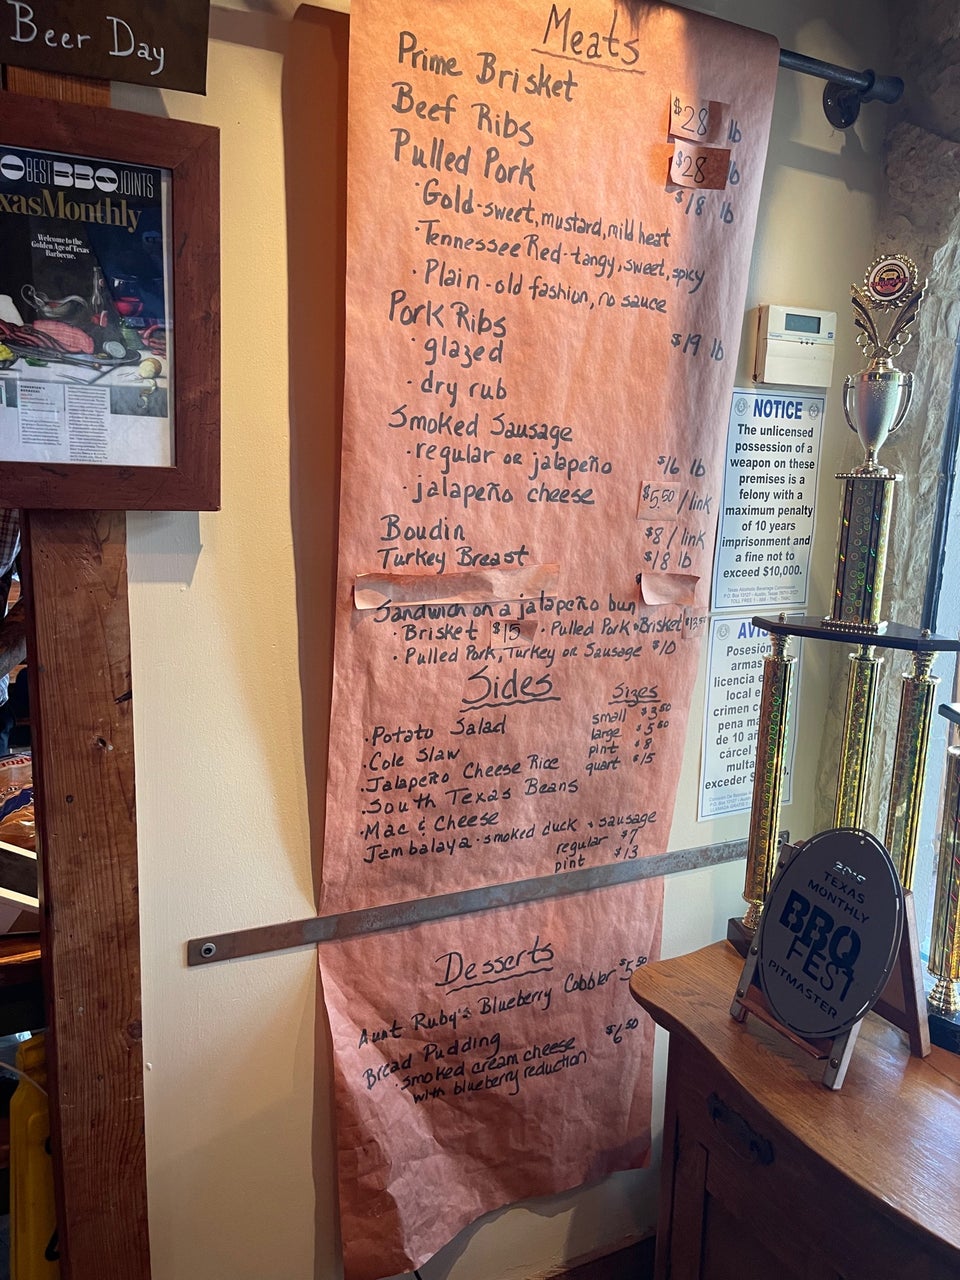 Beer Day
BEST BBQ JOINTS
xasMonthly
Welcome to the
Golden Age of Texas
Barbecue.
Meats
Prime Brisket $28 lb
Beef Ribs $28 lb
Pulled Pork $18 lb
· Gold-sweet, mustard, mild heat
· Tennessee Red-tangy, sweet, spicy
· Plain-old fashion, no sauce
Pork Ribs $19 lb
· glazed
· dry rub
Smoked Sausage
· regular or jalapeño $16 lb
· jalapeño cheese $5.50 /link
Boudin $8 /link
Turkey Breast $18 lb
Sandwich on a jalapeño bun
· Brisket $15 · Pulled Pork + Brisket $13.50
· Pulled Pork, Turkey or Sausage $10
Sides Sizes
· Potato Salad small $3.50
· Cole Slaw large $5.50
· Jalapeño Cheese Rice pint $8
· South Texas Beans quart $15
· Mac & Cheese
Jambalaya · smoked duck + sausage
regular $7
pint $13
Desserts
Aunt Ruby's Blueberry Cobbler $5.50
Bread Pudding $6.50
· smoked cream cheese
with blueberry reduction
NOTICE
The unlicensed
possession of a
weapon on these
premises is a
felony with a
maximum penalty
of 10 years
imprisonment and
a fine not to
exceed $10,000.
Texas Alcoholic Beverage Commission
P.O. Box 13127 - Austin, Texas 78711-3127
AVIS
Posesión
armas
licencia e
local e
crimen c
pena má
de 10 añ
cárcel y
multa
exceder $
TEXAS
MONTHLY
BBQ
FEST
PITMASTER